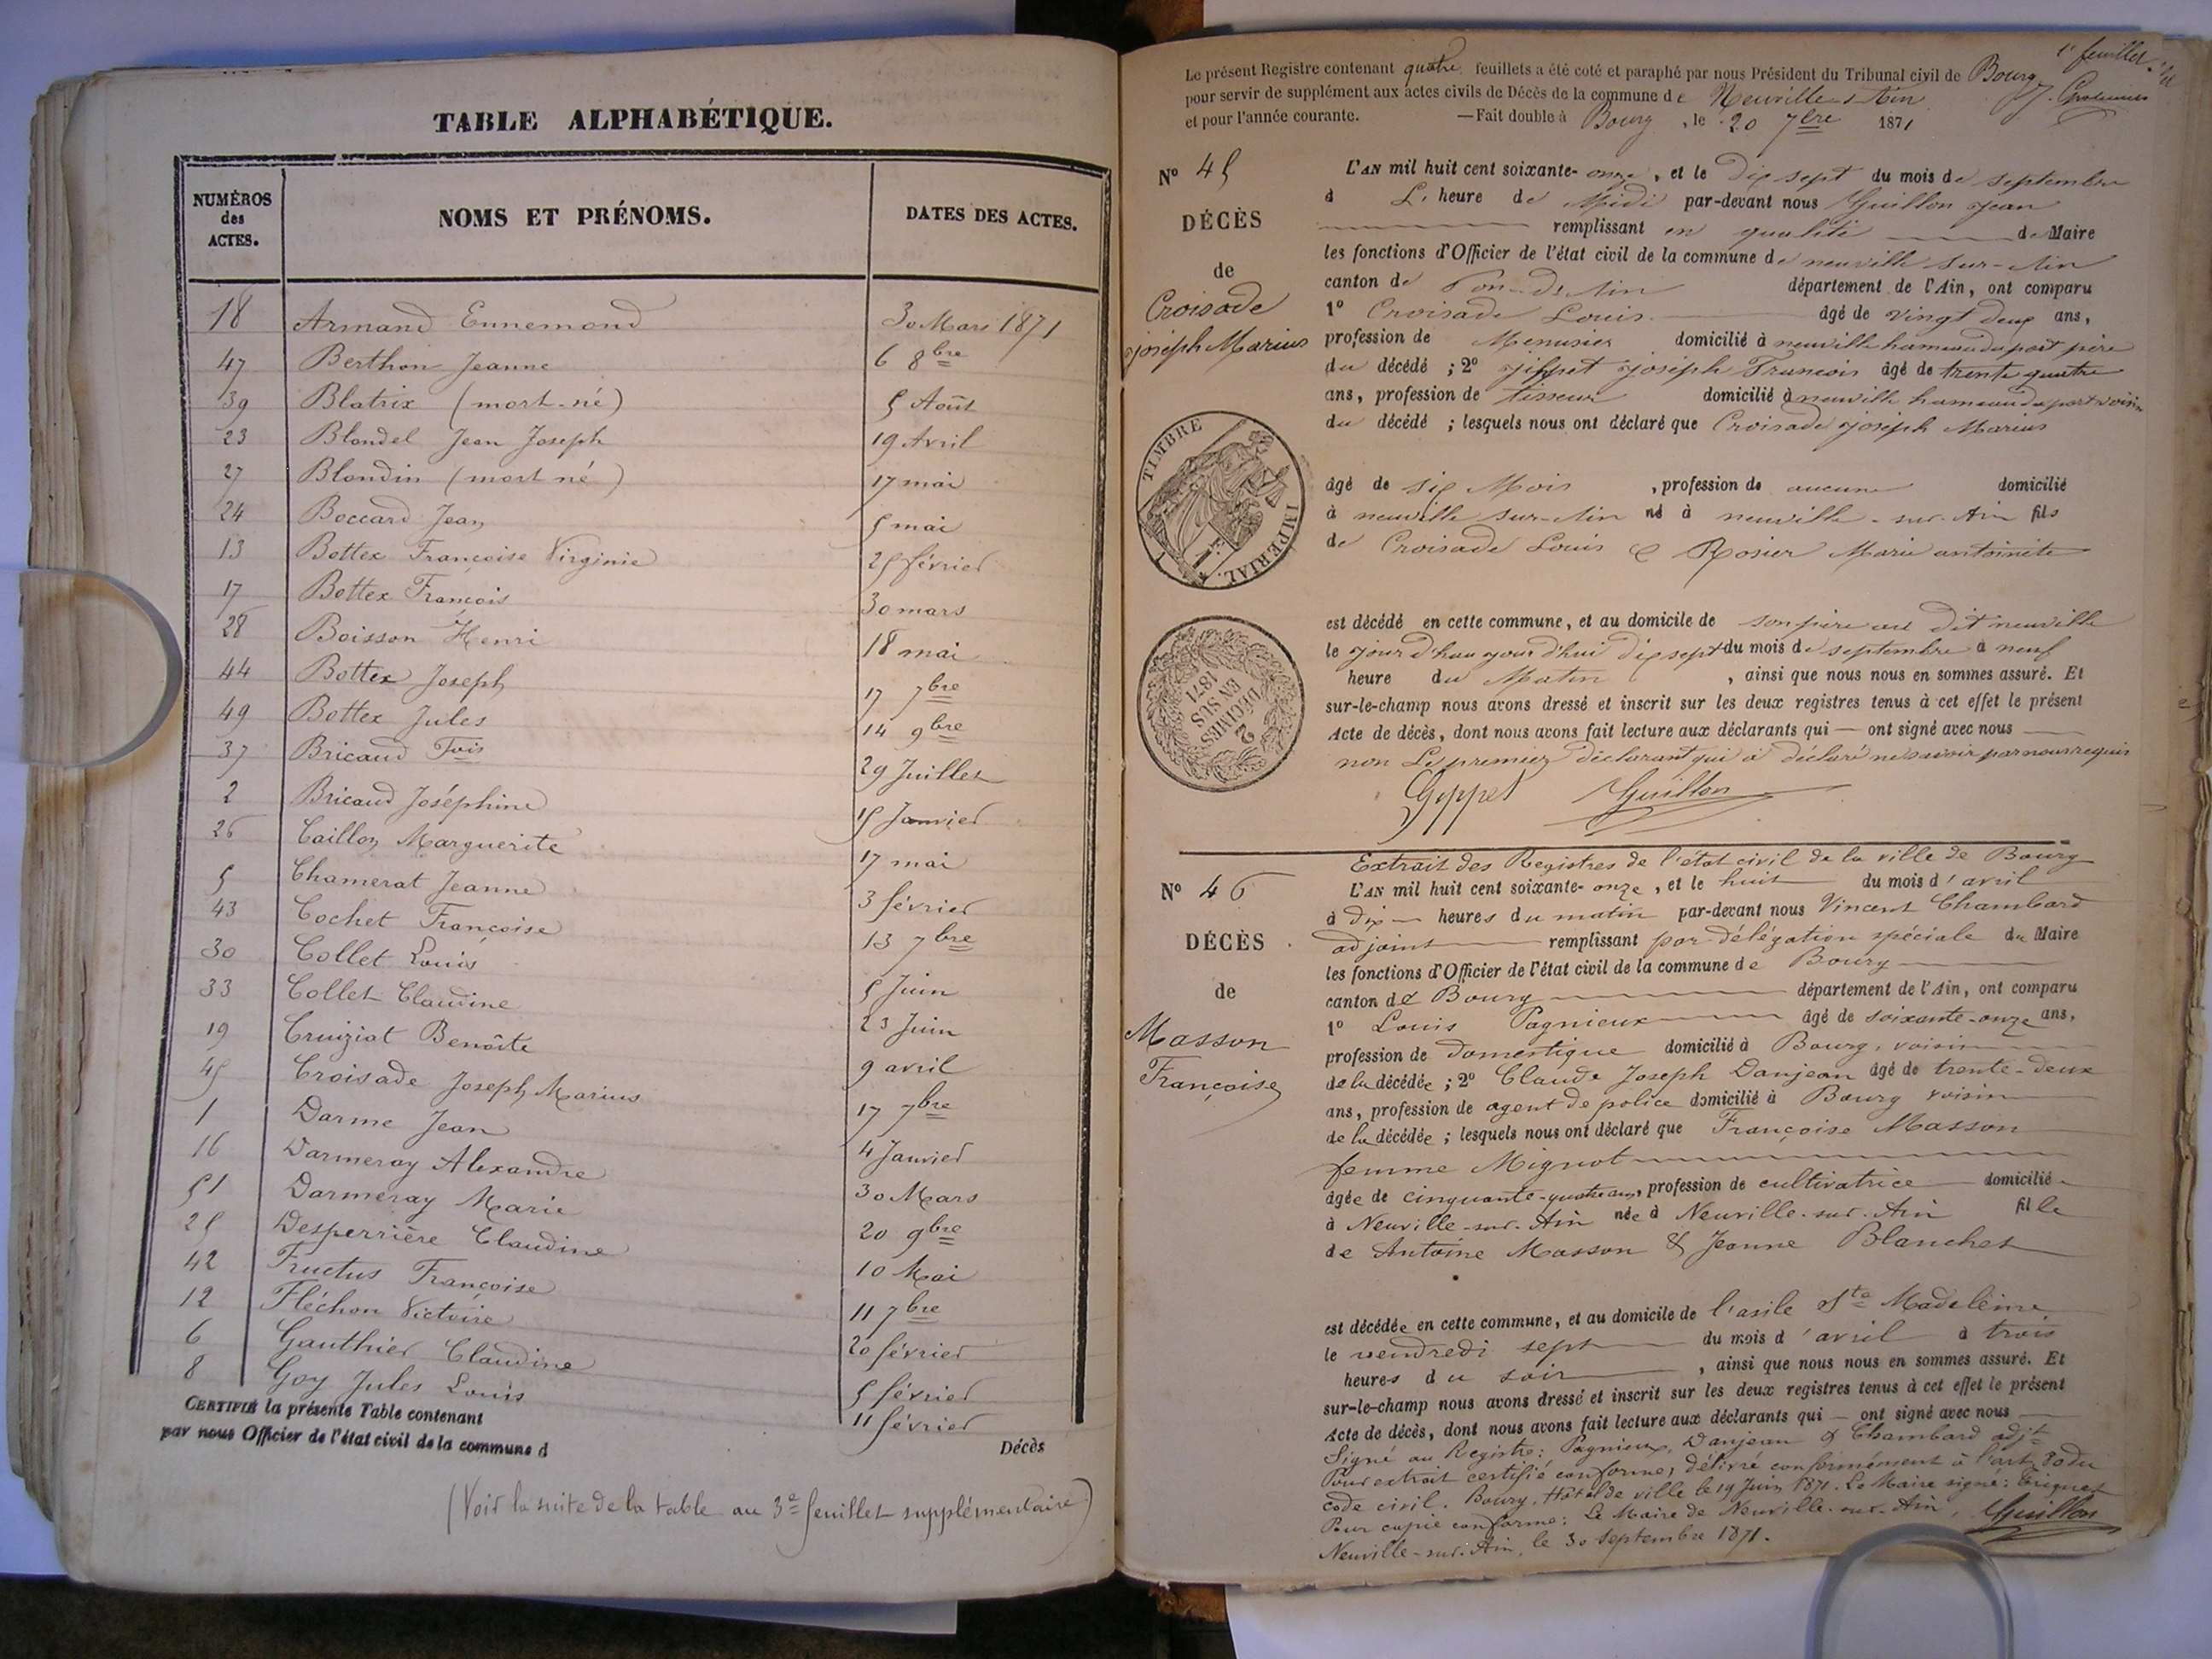 TABLE ALPHABÉTIQUE.
NUMÉROS des ACTES.
NOMS ET PRÉNOMS.
DATES DES ACTES.
18 Armand Ennemond 30 Mars 1871
47 Berthon Jeanne 6 8bre
39 Blatrix (mort-né) 5 Août
23 Blondel Jean Joseph 19 Avril
27 Blondin (mort né) 17 mai
24 Boccard Jean 5 mai
13 Bottex Françoise Virginie 25 février
17 Bottex François 30 mars
28 Boisson Henri 18 mai
44 Bottex Joseph 17 7bre
49 Bottex Jules 14 9bre
37 Bricaud Fois 29 Juillet
2 Bricaud Joséphine 15 Janvier
26 Caillon Marguerite 17 mai
5 Chamerat Jeanne 3 février
43 Cochet Françoise 13 7bre
30 Collet Louis 5 Juin
33 Collet Claudine 23 Juin
19 Cruiziat Benoîte 9 avril
45 Croisade Joseph Marius 17 7bre
1 Darme Jean 4 Janvier
16 Darmeray Alexandre 30 Mars
51 Darmeray Marie 20 9bre
25 Desperrière Claudine 10 Mai
42 Fructus Françoise 11 7bre
12 Fléchon Victoire 20 février
6 Gauthier Claudine 5 février
8 Goy Jules Louis 11 février
CERTIFIÉ la présente Table contenant Décès
par nous Officier de l'état civil de la commune d
(Voir la suite de la table au 3e feuillet supplémentaire)
1er feuillet
Le présent Registre contenant quatre feuillets a été coté et paraphé par nous Président du Tribunal civil de Bourg
pour servir de supplément aux actes civils de Décès de la commune de Neuville s Ain
et pour l'année courante. —Fait double à Bourg, le 20 7bre 1871
N° 45
DÉCÈS
de
Croisade
joséph Marius
L'AN mil huit cent soixante-onze, et le dix sept du mois de septembre
à L. heure de Midi par-devant nous Guillon Jean
remplissant en qualité de Maire
les fonctions d'Officier de l'état civil de la commune de neuville sur-Ain
canton de Pon-d-Ain département de l'Ain, ont comparu
1° Croisade Louis âgé de vingt deux ans,
profession de Menusier domicilié à neuville hameau du port père
du décédé ; 2° joseph François âgé de trente quatre
ans, profession de tisseur domicilié à neuville hameau du port voisin
du décédé ; lesquels nous ont déclaré que Croisade joséph Marius
âgé de six Mois, profession de aucune domicilié
à neuville sur-Ain né à neuville-sur-Ain fils
de Croisade Louis & Rosier Marie antoinete
TIMBRE IMPÉRIAL.
2 DÉCIMES EN SUS 1871
est décédé en cette commune, et au domicile de son père au dit neuville
le jour d'hau jour d'hui dix sept du mois de septembre à neuf
heure du Matin, ainsi que nous nous en sommes assuré. Et
sur-le-champ nous avons dressé et inscrit sur les deux registres tenus à cet effet le présent
Acte de décès, dont nous avons fait lecture aux déclarants qui — ont signé avec nous
non Le premier déclarant qui a déclaré ne savoir par nous requis
Gyppet Guillon
Extrait des Registres de l'état civil de la ville de Bourg
N° 46
DÉCÈS
de
Masson
Françoise
L'AN mil huit cent soixante-onze, et le huit du mois d'avril
à dix heures du matin par-devant nous Vincent Chambard
adjoint remplissant par délégation spéciale du Maire
les fonctions d'Officier de l'état civil de la commune de Bourg
canton de Bourg département de l'Ain, ont comparu
1° Louis Pagnieux âgé de soixante-onze ans,
profession de domestique domicilié à Bourg, voisin
de la décédée ; 2° Claude Joseph Danjean âgé de trente-deux
ans, profession de agent de police domicilié à Bourg voisin
de la décédée ; lesquels nous ont déclaré que Françoise Masson
femme Mignot
âgée de cinquante-quatre ans, profession de cultivatrice domiciliée
à Neuville-sur-Ain née à Neuville-sur-Ain fille
de Antoine Masson & Jeanne Blanchet
est décédée en cette commune, et au domicile de l'asile Ste Madeleine
le vendredi sept du mois d'avril à trois
heures du soir, ainsi que nous nous en sommes assuré. Et
sur-le-champ nous avons dressé et inscrit sur les deux registres tenus à cet effet le présent
Acte de décès, dont nous avons fait lecture aux déclarants qui — ont signé avec nous
Signé au Registre : Pagnieux, Danjean & Chambard adjt
Pour extrait certifié conforme, délivré conformément à l'art. 80 du
code civil. Bourg, Hôtel de ville le 19 Juin 1871. Le Maire signé :
Pour copie conforme : Le Maire de Neuville-sur-Ain, Guillon
Neuville-sur-Ain, le 30 Septembre 1871.